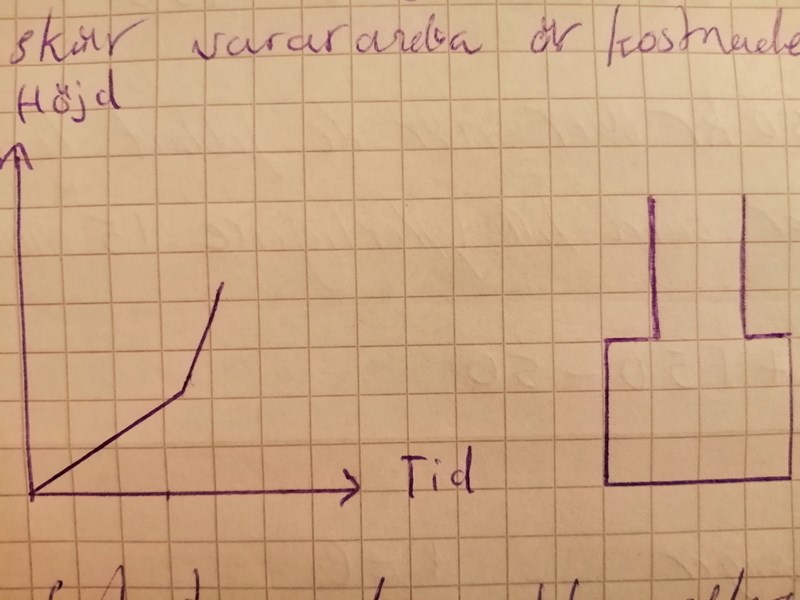 skär vararandra är kostnade
Höjd
Tid